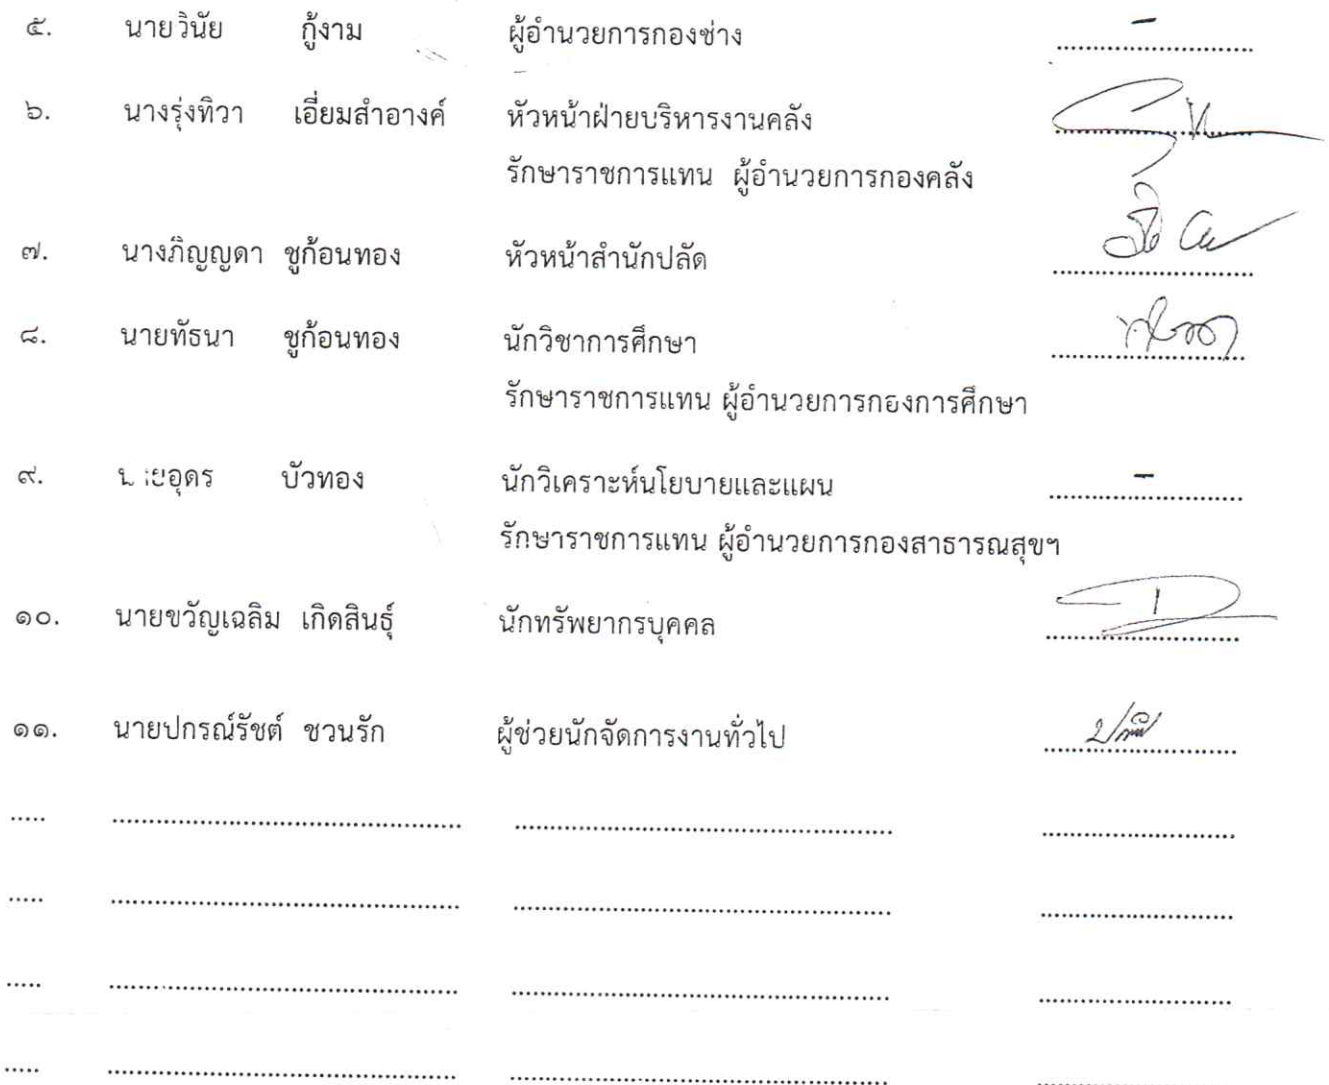 ๕. นายวินัย กู้งาม ผู้อำนวยการกองช่าง ........................... -
๖. นางรุ่งทิวา เอี่ยมสำอางค์ หัวหน้าฝ่ายบริหารงานคลัง ...........................
รักษาราชการแทน ผู้อำนวยการกองคลัง
๗. นางภิญญดา ชูก้อนทอง หัวหน้าสำนักปลัด ...........................
๘. นายทัธนา ชูก้อนทอง นักวิชาการศึกษา ...........................
รักษาราชการแทน ผู้อำนวยการกองการศึกษา
๙. นายอุดร บัวทอง นักวิเคราะห์นโยบายและแผน ........................... -
รักษาราชการแทน ผู้อำนวยการกองสาธารณสุขฯ
๑๐. นายขวัญเฉลิม เกิดสินธุ์ นักทรัพยากรบุคคล ...........................
๑๑. นายปกรณ์รัชต์ ชวนรัก ผู้ช่วยนักจัดการงานทั่วไป ...........................
..... ................................................ .................................................... ...........................
..... ................................................ .................................................... ...........................
..... ................................................ .................................................... ...........................
..... ................................................ .................................................... ...........................